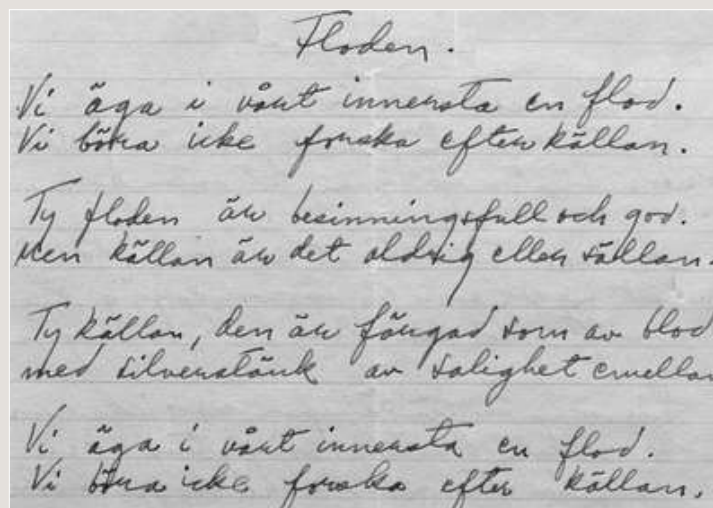 Floden.
Vi äga i vårt innersta en flod.
Vi böra icke forska efter källan.
Ty floden är besinningsfull och god.
Men källan är det aldrig eller sällan.
Ty källan, den är färgad som av blod
med silverstänk av salighet emellan
Vi äga i vårt innersta en flod.
Vi böra icke forska efter källan.